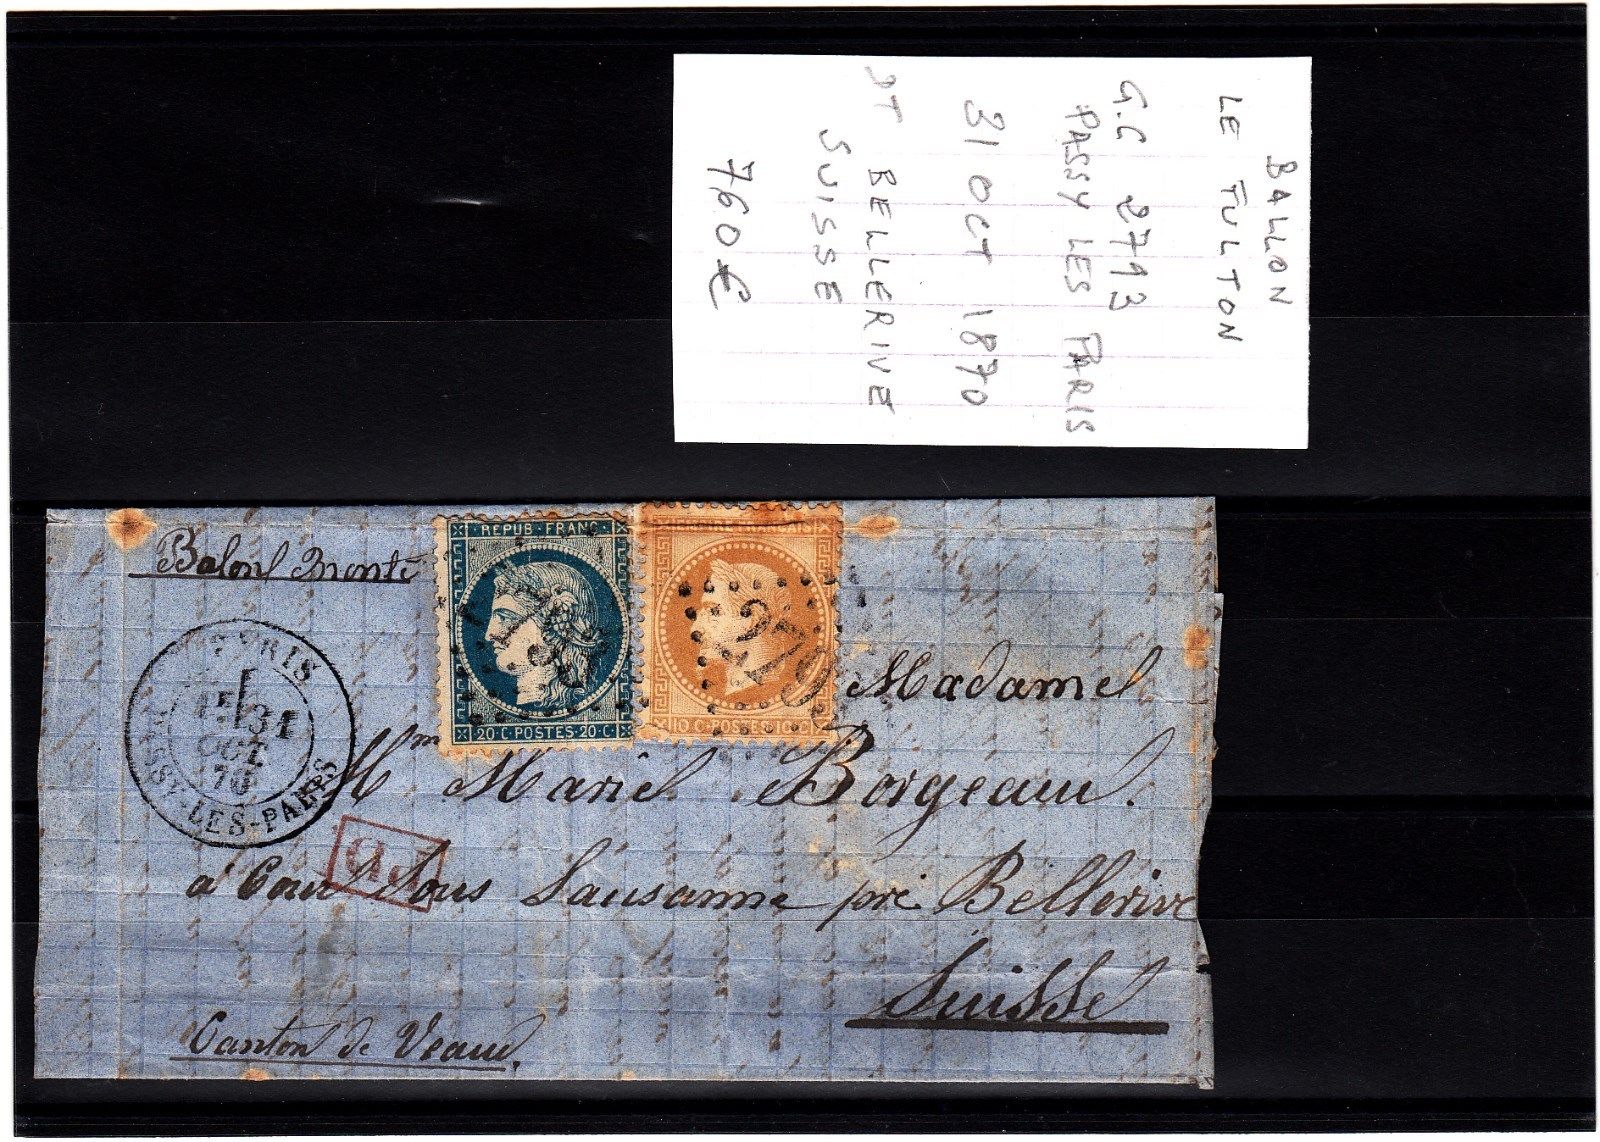 BALLON
LE FULTON
G.C 2793
PASSY LES PARIS
31 OCT 1870
DT BELLERIVE
SUISSE
760€
Balon monté
REPUB·FRANC
20·C·POSTES·20·C
10·C·POSTES·10·C
279
PASSY-LES-PARIS
31
OCT
70
P.D
Madame
Mm Marie Borgeaud.
a Cour Sous Lausanne pré Bellerive
Suisse
Canton de Veaud.